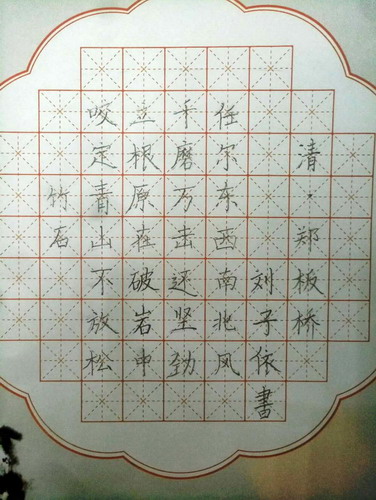 竹石
咬定青山不放松
立根原在破岩中
千磨万击还坚劲
任尔东西南北风
刘子依書
清·郑板桥